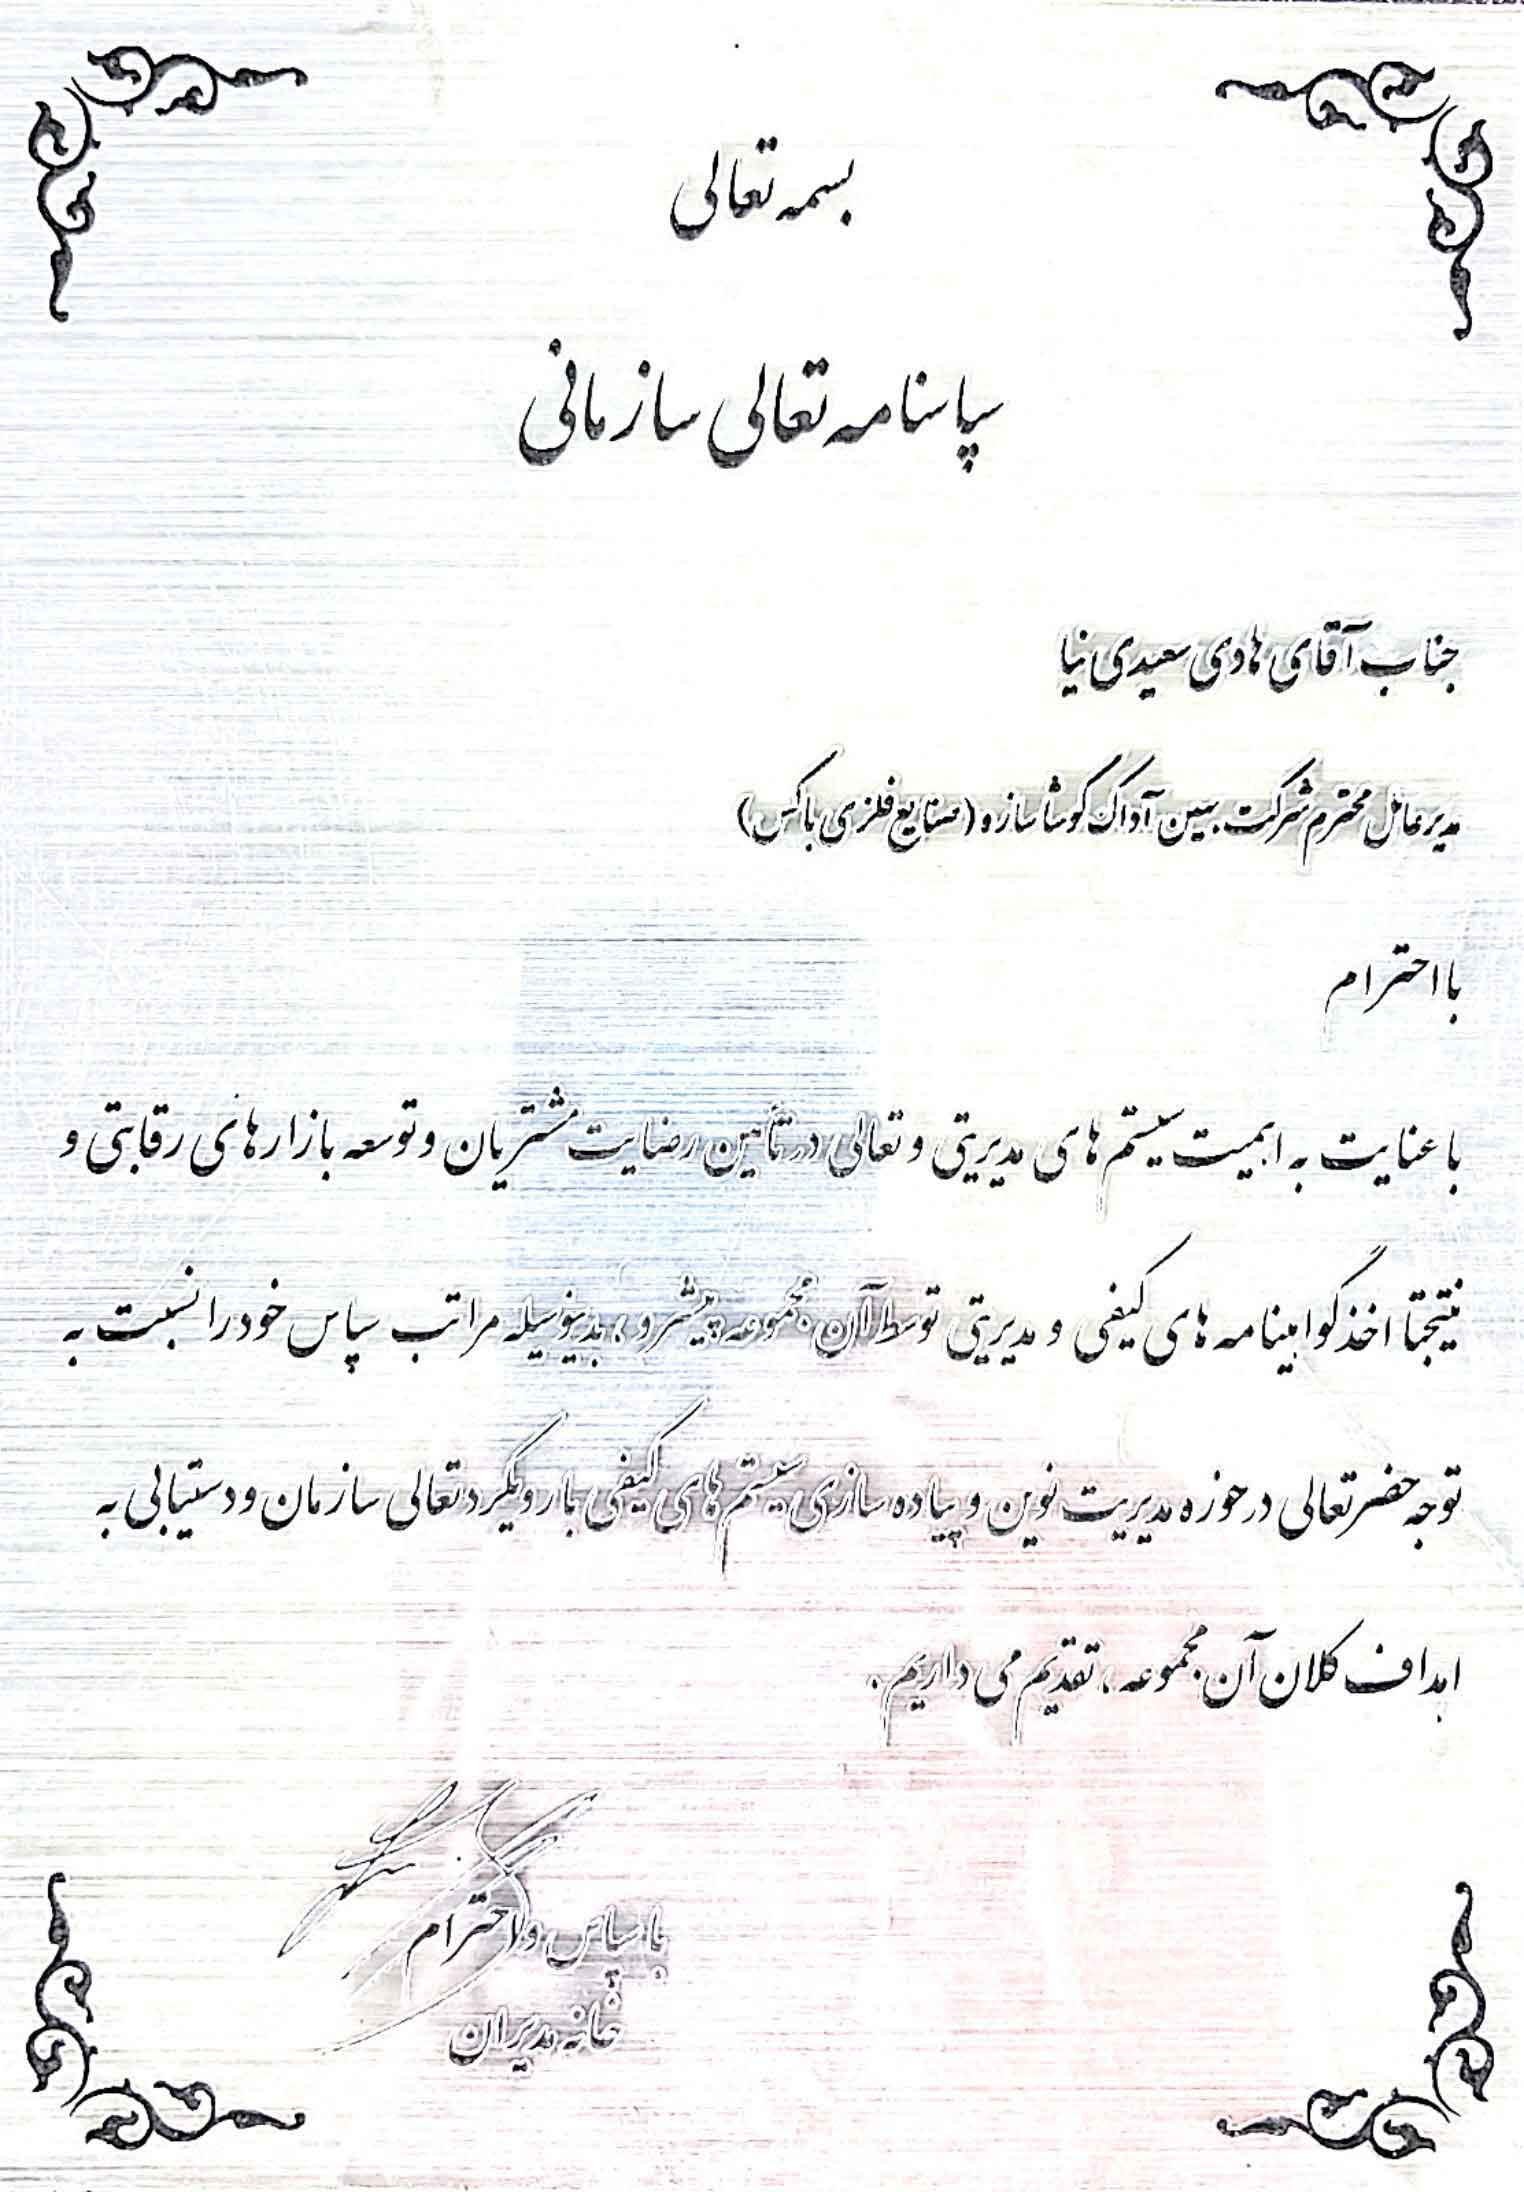 بسمه تعالی
سپاسنامه تعالی سازمانی
جناب آقای هادی سعیدی نیا
مدیرعامل محترم شرکت مبین آداک کوشا سازه (صنایع فلزی باکس)
با احترام
با عنایت به اهمیت سیستم های مدیریتی و تعالی در تأمین رضایت مشتریان و توسعه بازارهای رقابتی و
نتیجتا اخذ گواهینامه های کیفی و مدیریتی توسط آن مجموعه پیشرو، بدینوسیله مراتب سپاس خود را نسبت به
توجه حضرتعالی در حوزه مدیریت نوین و پیاده سازی سیستم های کیفی با رویکرد تعالی سازمان و دستیابی به
اهداف کلان آن مجموعه، تقدیم می داریم.
با سپاس و احترام
خانه مدیران